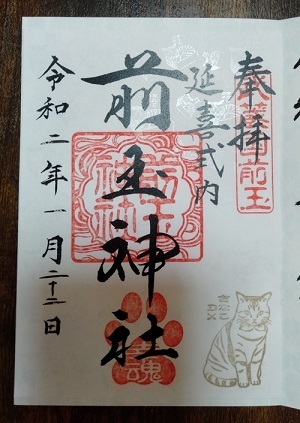 奉拝
延喜式内
前玉神社
令和二年一月二十二日
幸魂